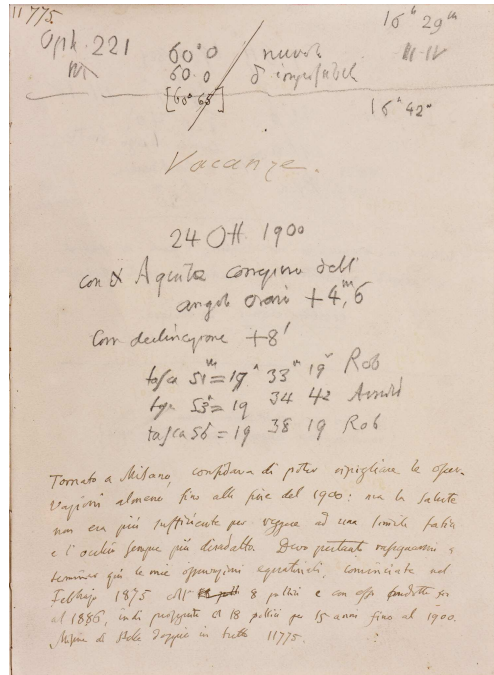 11775
Oph. 221 60°0 nuvole 16ʰ 29ᵐ
60.0 III-IV
[60°65]
16ʰ 42ᵐ
Vacanze.
24 Ott. 1900
con α Aquilae correzione dell'
angolo orario +4ᵐ,6
Con declinazione +8'
tasca 51ᵐ = 19ʰ 33ᵐ 19ˢ Rob
53ᵐ = 19 34 42
tasca 56 = 19 38 19 Rob
Tornato a Milano, confidava di poter ripigliare le osser-
vazioni almeno fino alla fine del 1900: ma la salute
non era più sufficiente per reggere ad una simile fatica
e l'occhio sempre più disadatto. Devo pertanto rassegnarmi a
terminar qui le mie osservazioni equatoriali, cominciate nel
Febbraio 1875 coll' 8 pollici e con esso condotte fin
al 1886, indi proseguite al 18 pollici per 15 anni fino al 1900.
Misure di Stelle doppie in tutto 11775.